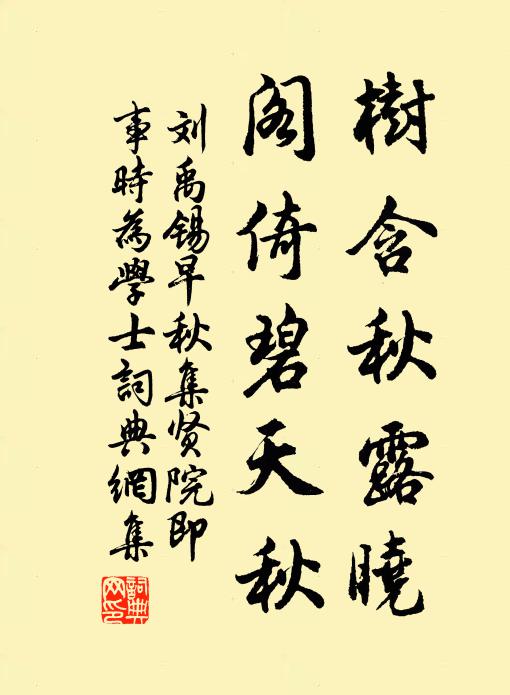 樹含秋露曉
阁倚碧天秋
刘禹锡早秋集贤院即
事時為學士詞典網集
詞典网印